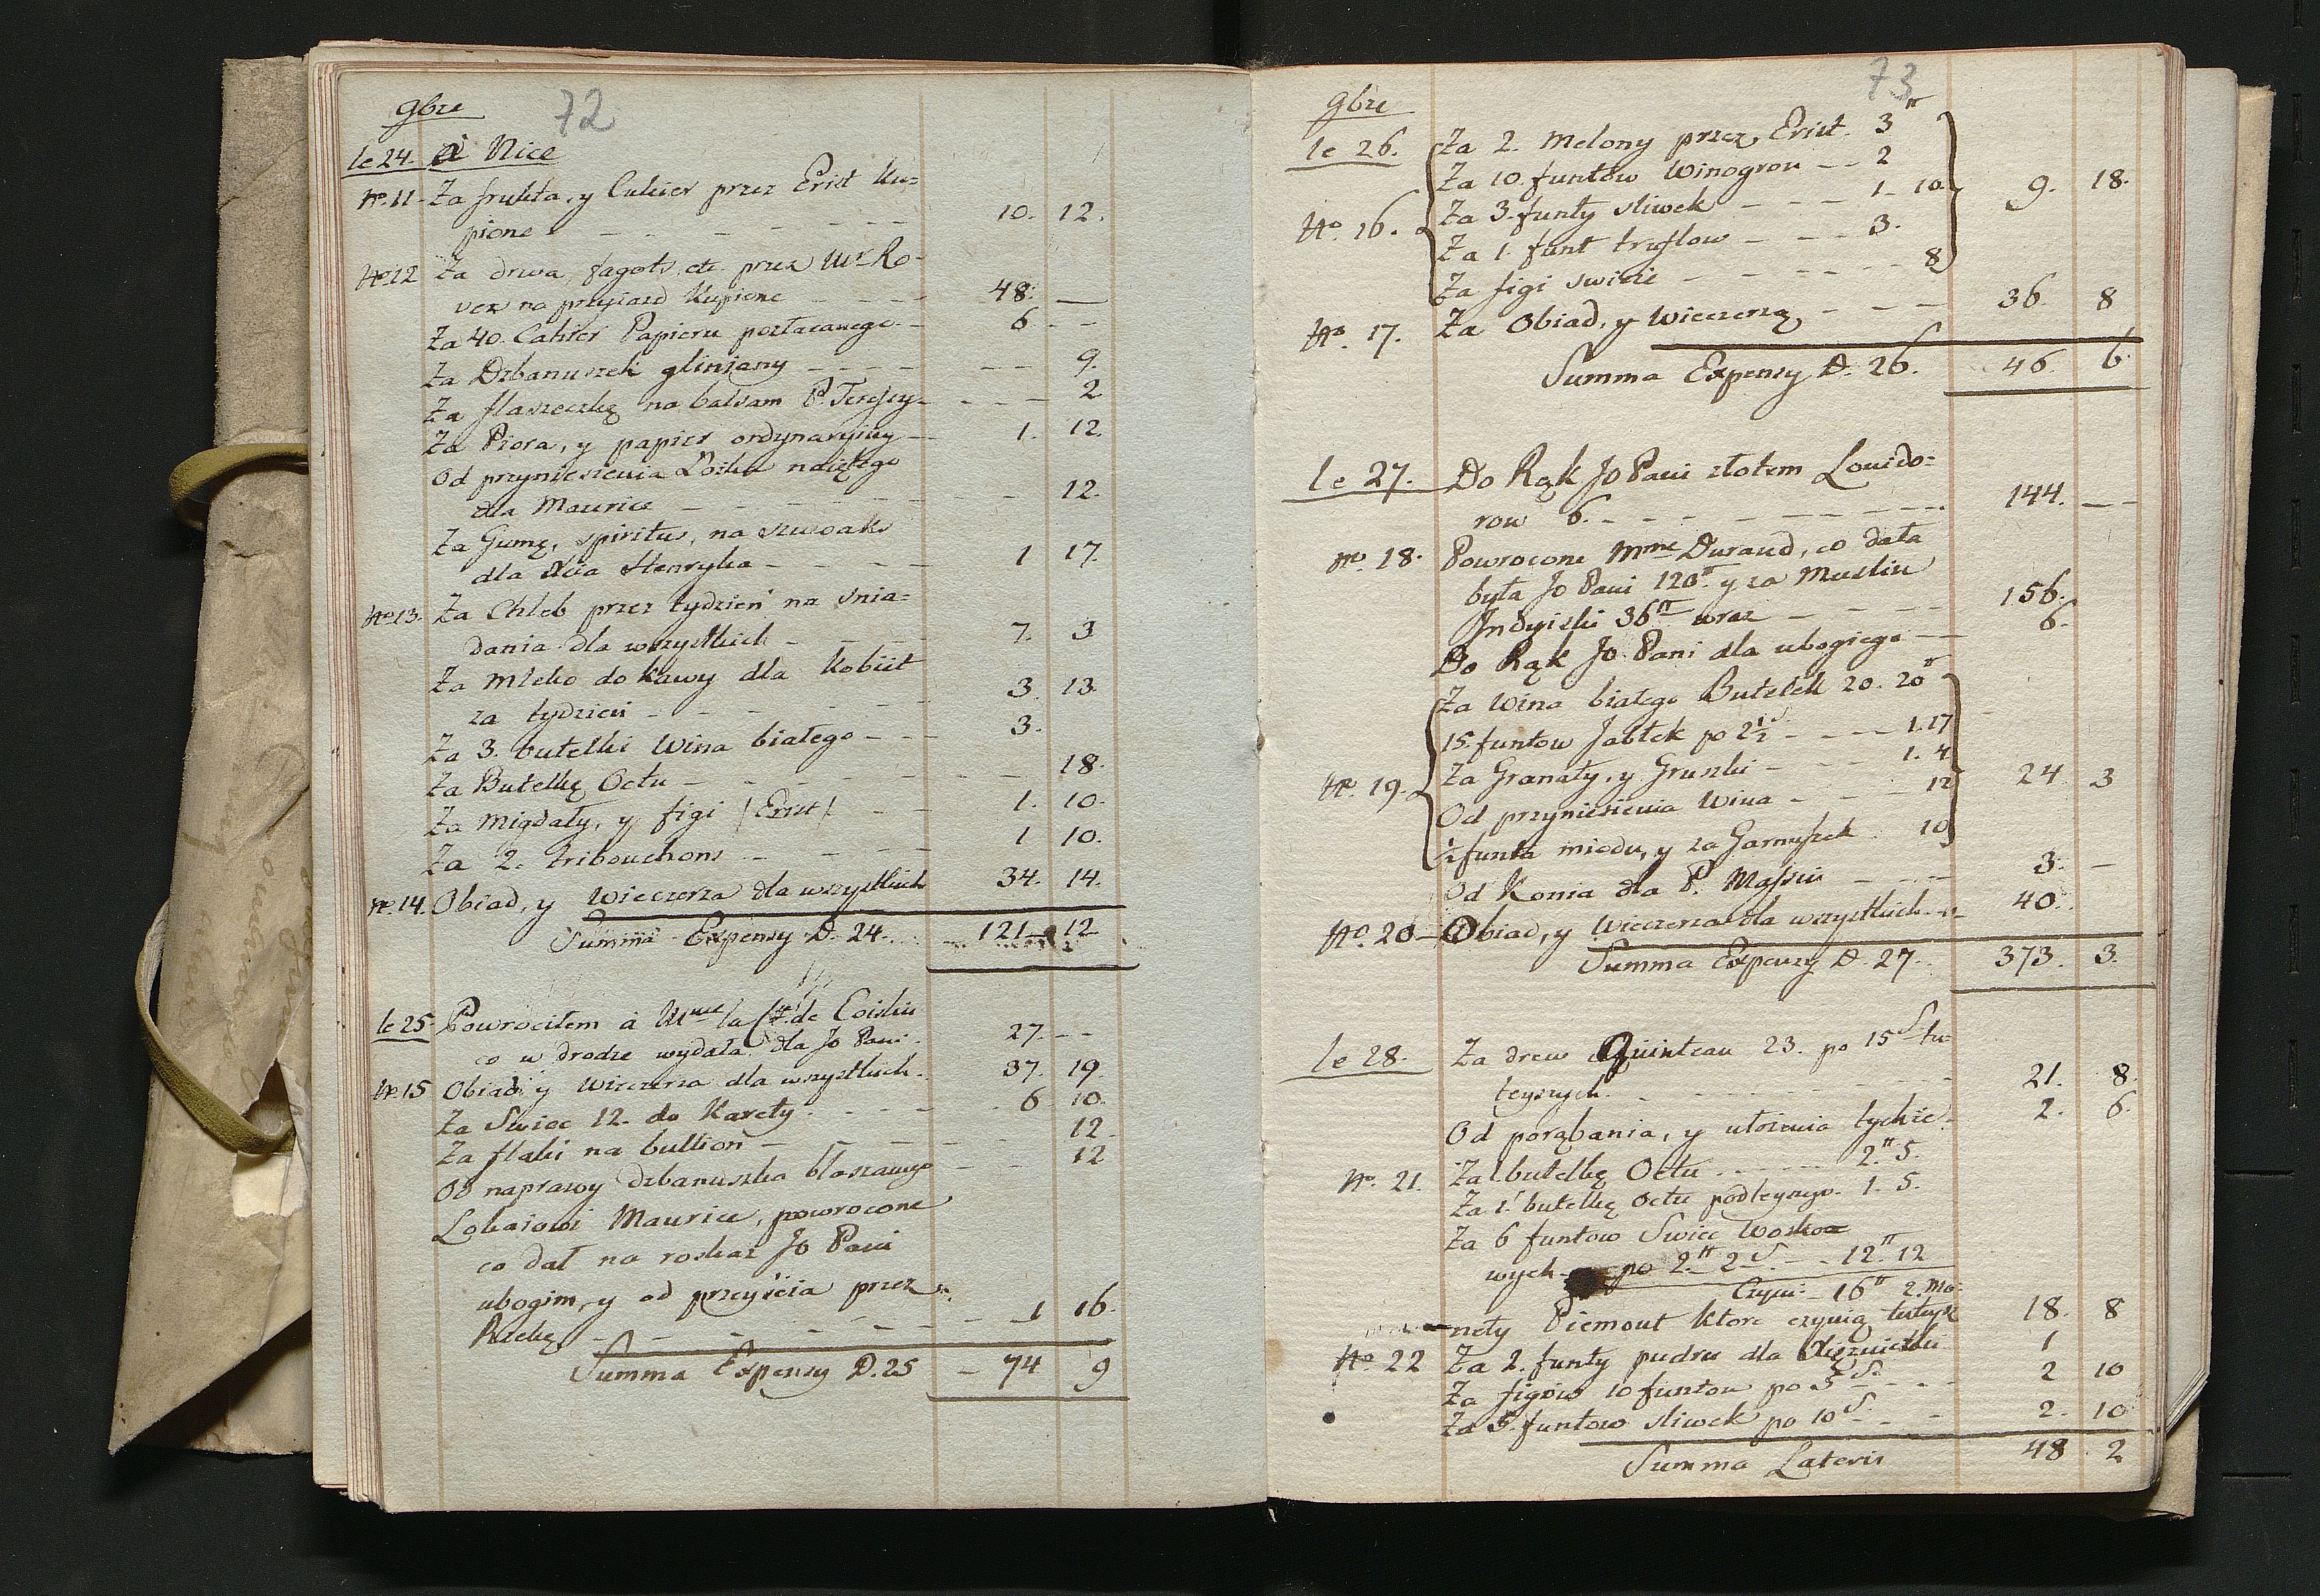 72
9bre
le 24. à Nice
No. 11 Za frukta, y Cukier przez Erist Ku=
pione - - - - - - 10. 12.
No 12 Za drwa, fagots, etc. przez Mr. Ro-
ver na przyiazd Kupione - - - 48. —
Za 40. Cahier Papieru pozłacanego - 6 - -
Za Dzbanuszek gliniany - - - - - - 9.
Za flaszeczkę na balsam P. Teressy - - - - 2
Za Piora, y papier ordynaryiny - 1. 12.
Od przyniesienia Łożka naiętego
dla Maurice - - - - - - 12.
Za Gumę, spiritus, na szuwaks
dla Xcia Henryka - - - - 1 17.
No 13. Za Chleb przez tydzień na śnia=
dania dla wszystkich - - - - 7. 3
Za Mleko do Kawy dla Kobiet
za tydzień - - - - - - 3. 13.
Za 3. butelki Wina białego - - - 3.
Za Butelkę Octu - - - - - - 18.
Za Migdały, y figi /Erist/ - - 1. 10.
Za 2. tribouchons - - - - 1 10.
No. 14. Obiad, y Wieczerza dla wszystkich 34. 14.
Summa Expensy D. 24. - 121 - 12
le 25 Powrociłem à Mme la Ctse. de Coislin
co w drodze wydała dla Jo Pani. 27. - -
No. 15 Obiad y Wieczerza dla wszystkich. 37. 19
Za Swiec 12. do Karety. - - - - 6 10.
Za flaki na bullion - - - - - 12.
Od naprawy dzbanuszka blaszanego - - 12
Lokaiowi Maurice, powrocone
co dał na roskaz Jo Pani
ubogim, y od przeyścia przez
Rzekę - - - - - - - 1 16.
Summa Expensy D. 25 - 74 9
73
9bre
le 26. Za 2. Melony przez Erist. 3 ₶
Za 10. funtów Winogron - - 2
Za 3. funty sliwek - - - 1. 10.
No. 16. 9. 18.
Za 1. funt truflow - - - 3.
Za figi swieże - - - - - 8
No. 17. Za Obiad, y Wieczerzą - - - 36. 8
Summa Expensy D. 26. 46. 6.
le 27. Do Rąk Jo Pani złotem Louido=
row 6. - - - - - - - - 144. - -
No. 18. Powrocone Mme Durand, co dała
była Jo Pani 120 ₶ y za Muslin
Indyiski 36 ₶ wraz - - - - 156.
Do Rąk Jo Pani dla ubogiego - - 6.
Za Wina białego Butelek 20. 20 ₶
15. funtow Jabłek po 2½ S - - - - 1. 17
Za Granaty, y Gruszki - - - 1. 4
No. 19. 24. 3
Od przyniesienia Wina - - - 12
½ funta miodu, y za Garnuszek. 10
Od Konia dla P. Massin - - - 3. -
No. 20 Obiad, y Wieczerza dla wszystkich. - 40.
Summa Expensy D. 27. 373. 3.
le 28. Za drew Quinteau 23. po 15 S tu=
teyszych. - - - - - - 21. 8.
Od porąbania, y ułożenia tychże. 2. 6.
No. 21. Za 1. butelkę Octu - - - - 2. ₶ 5.
Za 1. butelkę Octu podleyszego. 1. 5.
Za 6 funtow Swiec Wosko=
wych po 2. ₶ 2 S. - - 12. ₶ 12
Czyni - 16 ₶ 2. Mo-
nety Piemont ktore czynią tuteysz 18. 8
No. 22 Za 2. funty pudru dla Xiężniczki 1
Za figow 10 funtow po 5 S. - - - 2 10
Za 5. funtow sliwek po 10 S - - - 2. 10
Summa Lateris 48. 2